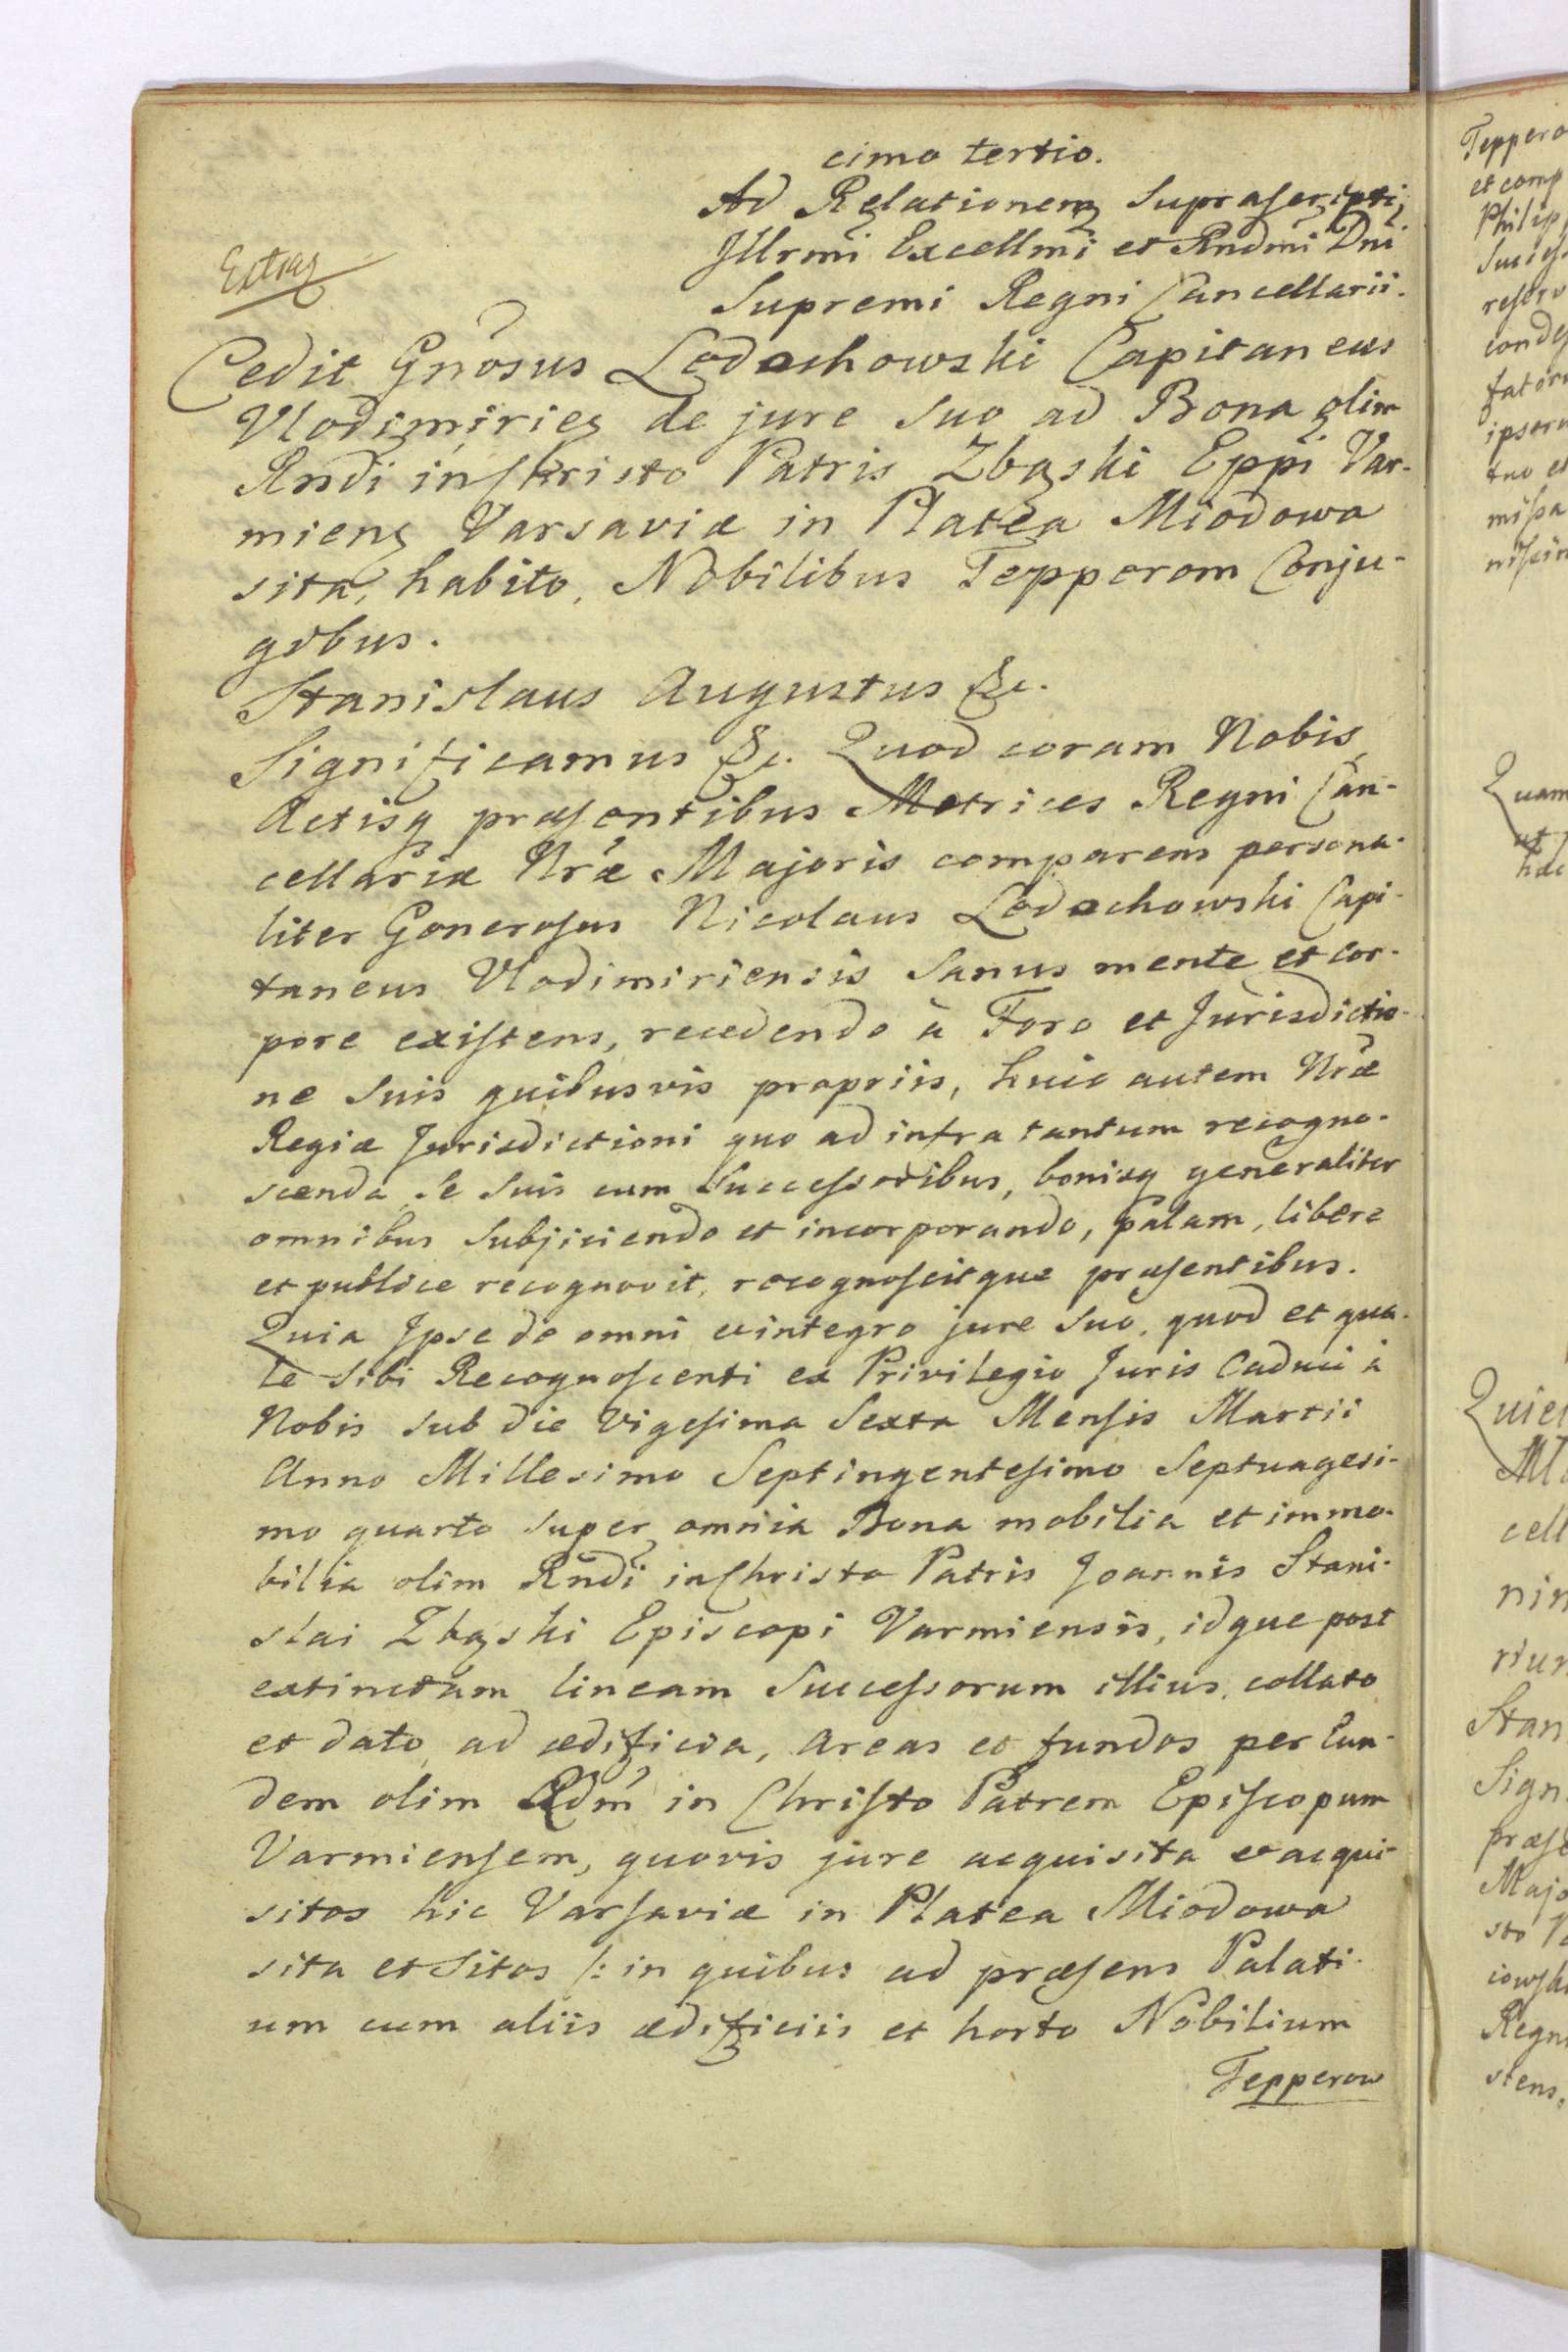 cimo tertio.
Ad Relationem Suprascripti
Jllrmi Excellmi et Rndmi Dni
Supremi Regni Cancellarii.
Extrad
Cedit Gnosus Ledochowski Capitaneus
Vlodimirien de jure suo ad Bona olim
Rndi in Christo Patris Zbąski Eppi Var-
mien Varsaviæ in Platea Miodowa
sita, habito, Nobilibus Tepperom Conju-
gibus.
Stanislaus Augustus &c.
Significamus &c. Quod coram Nobis
Actisq præsentibus Metrices Regni Can-
cellariæ Nræ Majoris comparens persona-
liter Generosus Nicolaus Ledochowski Capi-
taneus Vlodimiriensis Sanus mente et cor-
pore existens, recedendo à Foro et Jurisdictio-
ne Suis quibusvis propriis, huic autem Nræ
Regiæ Jurisdictioni quo ad infra tantum recogno-
scenda, Se Suis cum Successoribus, bonisq generaliter
omnibus Subjiciendo et incorporando, palam, libere
et publice recognovit, recognoscitque præsentibus.
Quia Jpse de omni et integro jure Suo, quod et qua-
le Sibi Recognoscenti ex Privilegio Juris Caduci à
Nobis Sub die Vigesima Sexta Mensis Martii
Anno Millesimo Septingentesimo Septuagesi-
mo quarto Super omnia Bona mobilia et immo-
bilia olim Rndi in Christo Patris Joannis Stani-
slai Zbąski Episcopi Varmiensis, idque post
extinctam lineam Successorum illius, collato
et dato, ad ædificia, areas et fundos per Eun-
dem olim Rdm in Christo Patrem Episcopum
Varmiensem, quovis jure acquisita et acqui-
sitos hic Varsaviæ in Platea Miodowa
sita et Sitos /: in quibus ad præsens Palati-
um cum aliis ædificiis et horto Nobilium
Tepperow